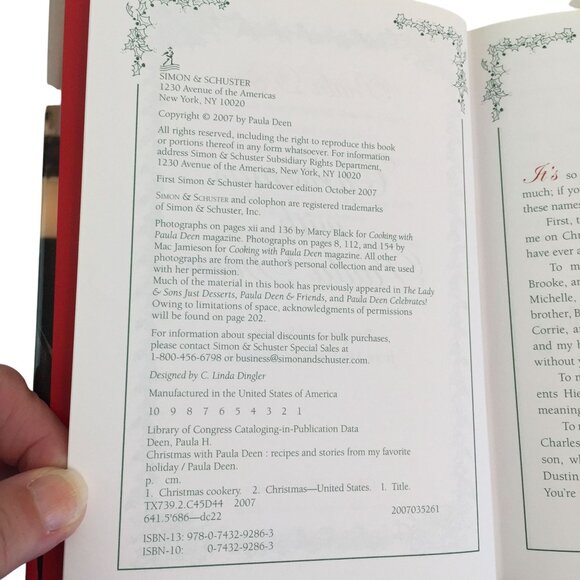 SIMON & SCHUSTER
1230 Avenue of the Americas
New York, NY 10020
Copyright © 2007 by Paula Deen
All rights reserved, including the right to reproduce this book
or portions thereof in any form whatsoever. For information
address Simon & Schuster Subsidiary Rights Department,
1230 Avenue of the Americas, New York, NY 10020
First Simon & Schuster hardcover edition October 2007
SIMON & SCHUSTER and colophon are registered trademarks
of Simon & Schuster, Inc.
Photographs on pages xii and 136 by Marcy Black for Cooking with
Paula Deen magazine. Photographs on pages 8, 112, and 154 by
Mac Jamieson for Cooking with Paula Deen magazine. All other
photographs are from the author's personal collection and are used
with her permission.
Much of the material in this book has previously appeared in The Lady
& Sons Just Desserts, Paula Deen & Friends, and Paula Deen Celebrates!
Owing to limitations of space, acknowledgments of permissions
will be found on page 202.
For information about special discounts for bulk purchases,
please contact Simon & Schuster Special Sales at
1-800-456-6798 or business@simonandschuster.com.
Designed by C. Linda Dingler
Manufactured in the United States of America
10 9 8 7 6 5 4 3 2 1
Library of Congress Cataloging-in-Publication Data
Deen, Paula H.
Christmas with Paula Deen : recipes and stories from my favorite
holiday / Paula Deen.
p. cm.
1. Christmas cookery. 2. Christmas—United States. 1. Title.
TX739.2.C45D44 2007
641.5'686—dc22 2007035261
ISBN-13: 978-0-7432-9286-3
ISBN-10: 0-7432-9286-3
It's so
much; if you
these names
me on Chr
have ever a
To m
Brooke, an
Michelle,
brother, B
Corrie, an
and my b
without y
To m
ents Hie
meaning
To m
Charles
son, wh
Dustin
You're